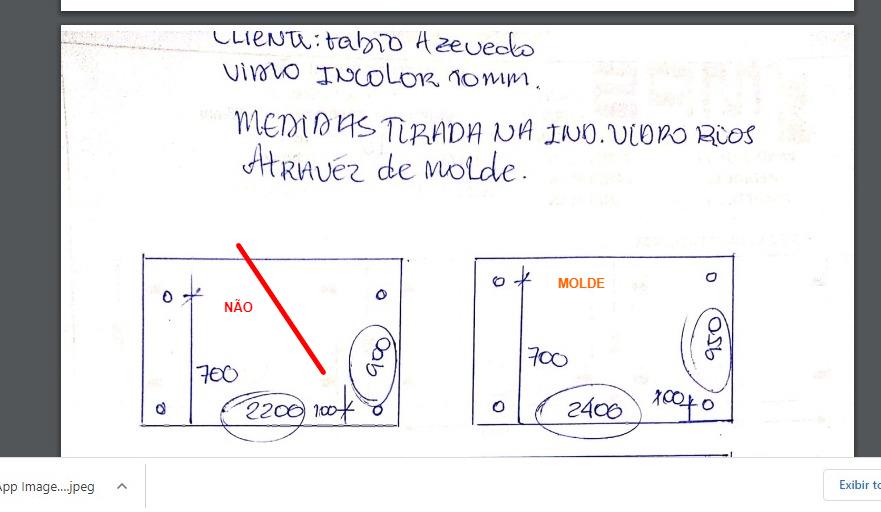 CLIENTE: FABIO AZEVEDO
VIDRO INCOLOR 10MM.
MEDIDAS TIRADA NA IND. VIDRO RIOS
ATRAVÉZ de MOLDE.
NÃO
900
700
2200
100
MOLDE
950
700
2400
100
App Image....jpeg
Exibir to